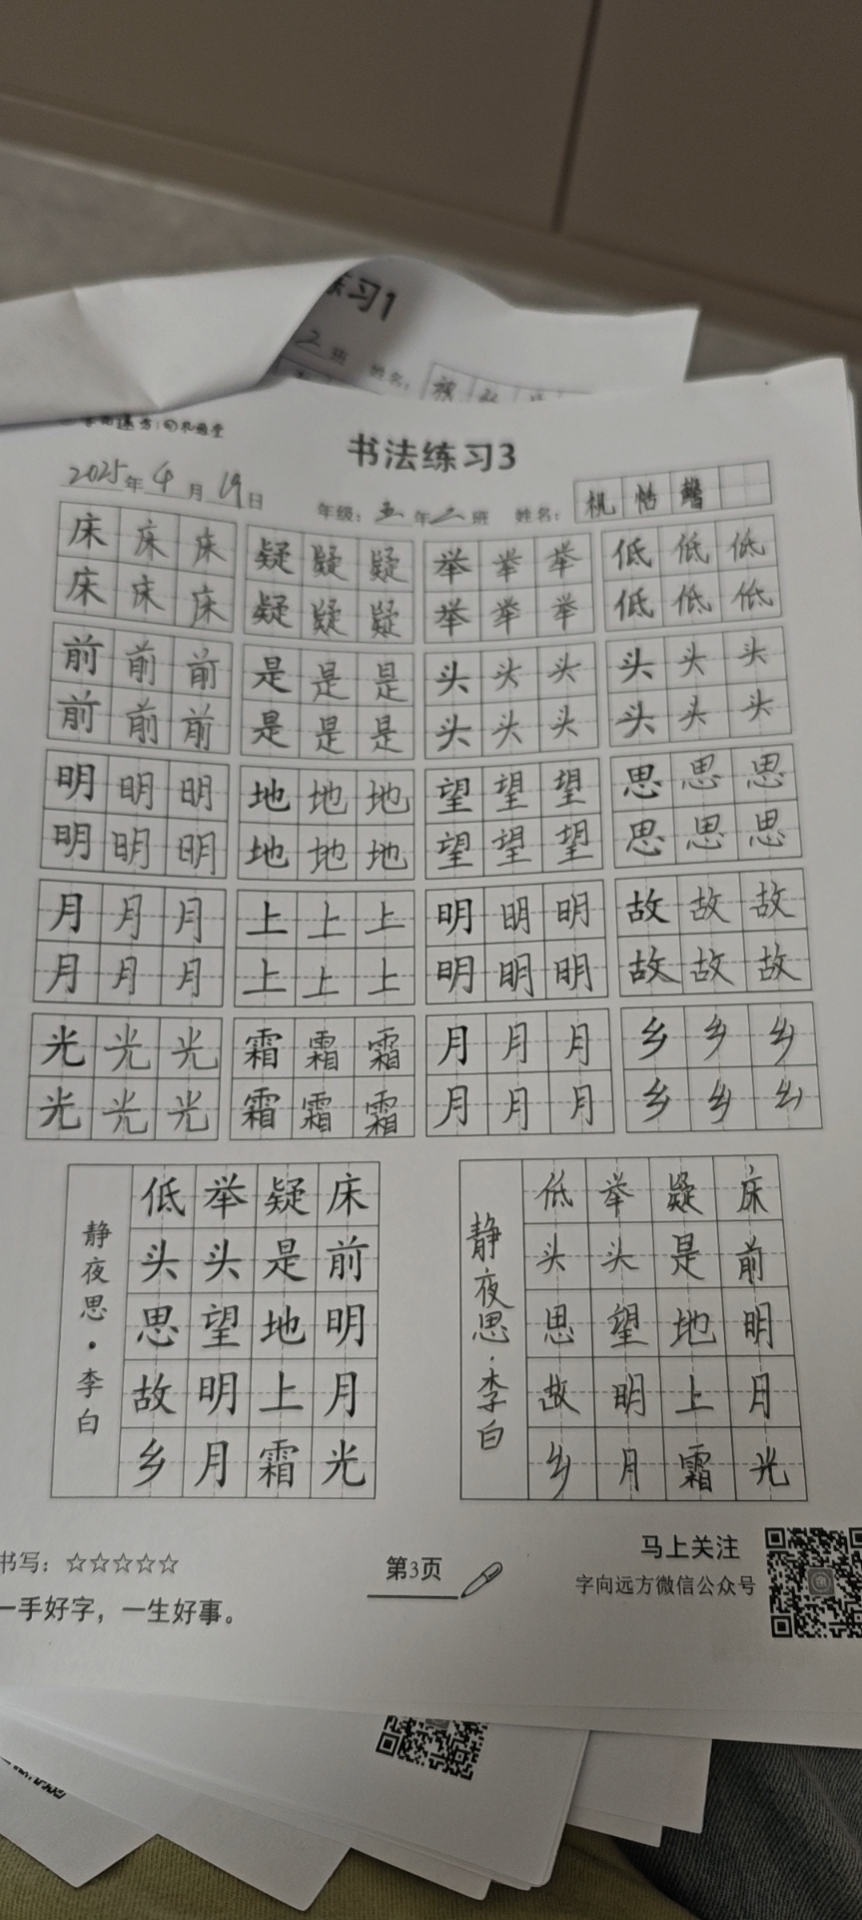 练习1
2 班 姓名：
书法练习3
2025年4月19日 年级：五年二班 姓名：
床床床 疑疑疑 举举举 低低低
床床床 疑疑疑 举举举 低低低
前前前 是是是 头头头 头头头
前前前 是是是 头头头 头头头
明明明 地地地 望望望 思思思
明明明 地地地 望望望 思思思
月月月 上上上 明明明 故故故
月月月 上上上 明明明 故故故
光光光 霜霜霜 月月月 乡乡乡
光光光 霜霜霜 月月月 乡乡乡
静夜思·李白
床前明月光
疑是地上霜
举头望明月
低头思故乡
静夜思·李白
床前明月光
疑是地上霜
举头望明月
低头思故乡
书写：☆☆☆☆☆
一手好字，一生好事。
第3页
马上关注
字向远方微信公众号